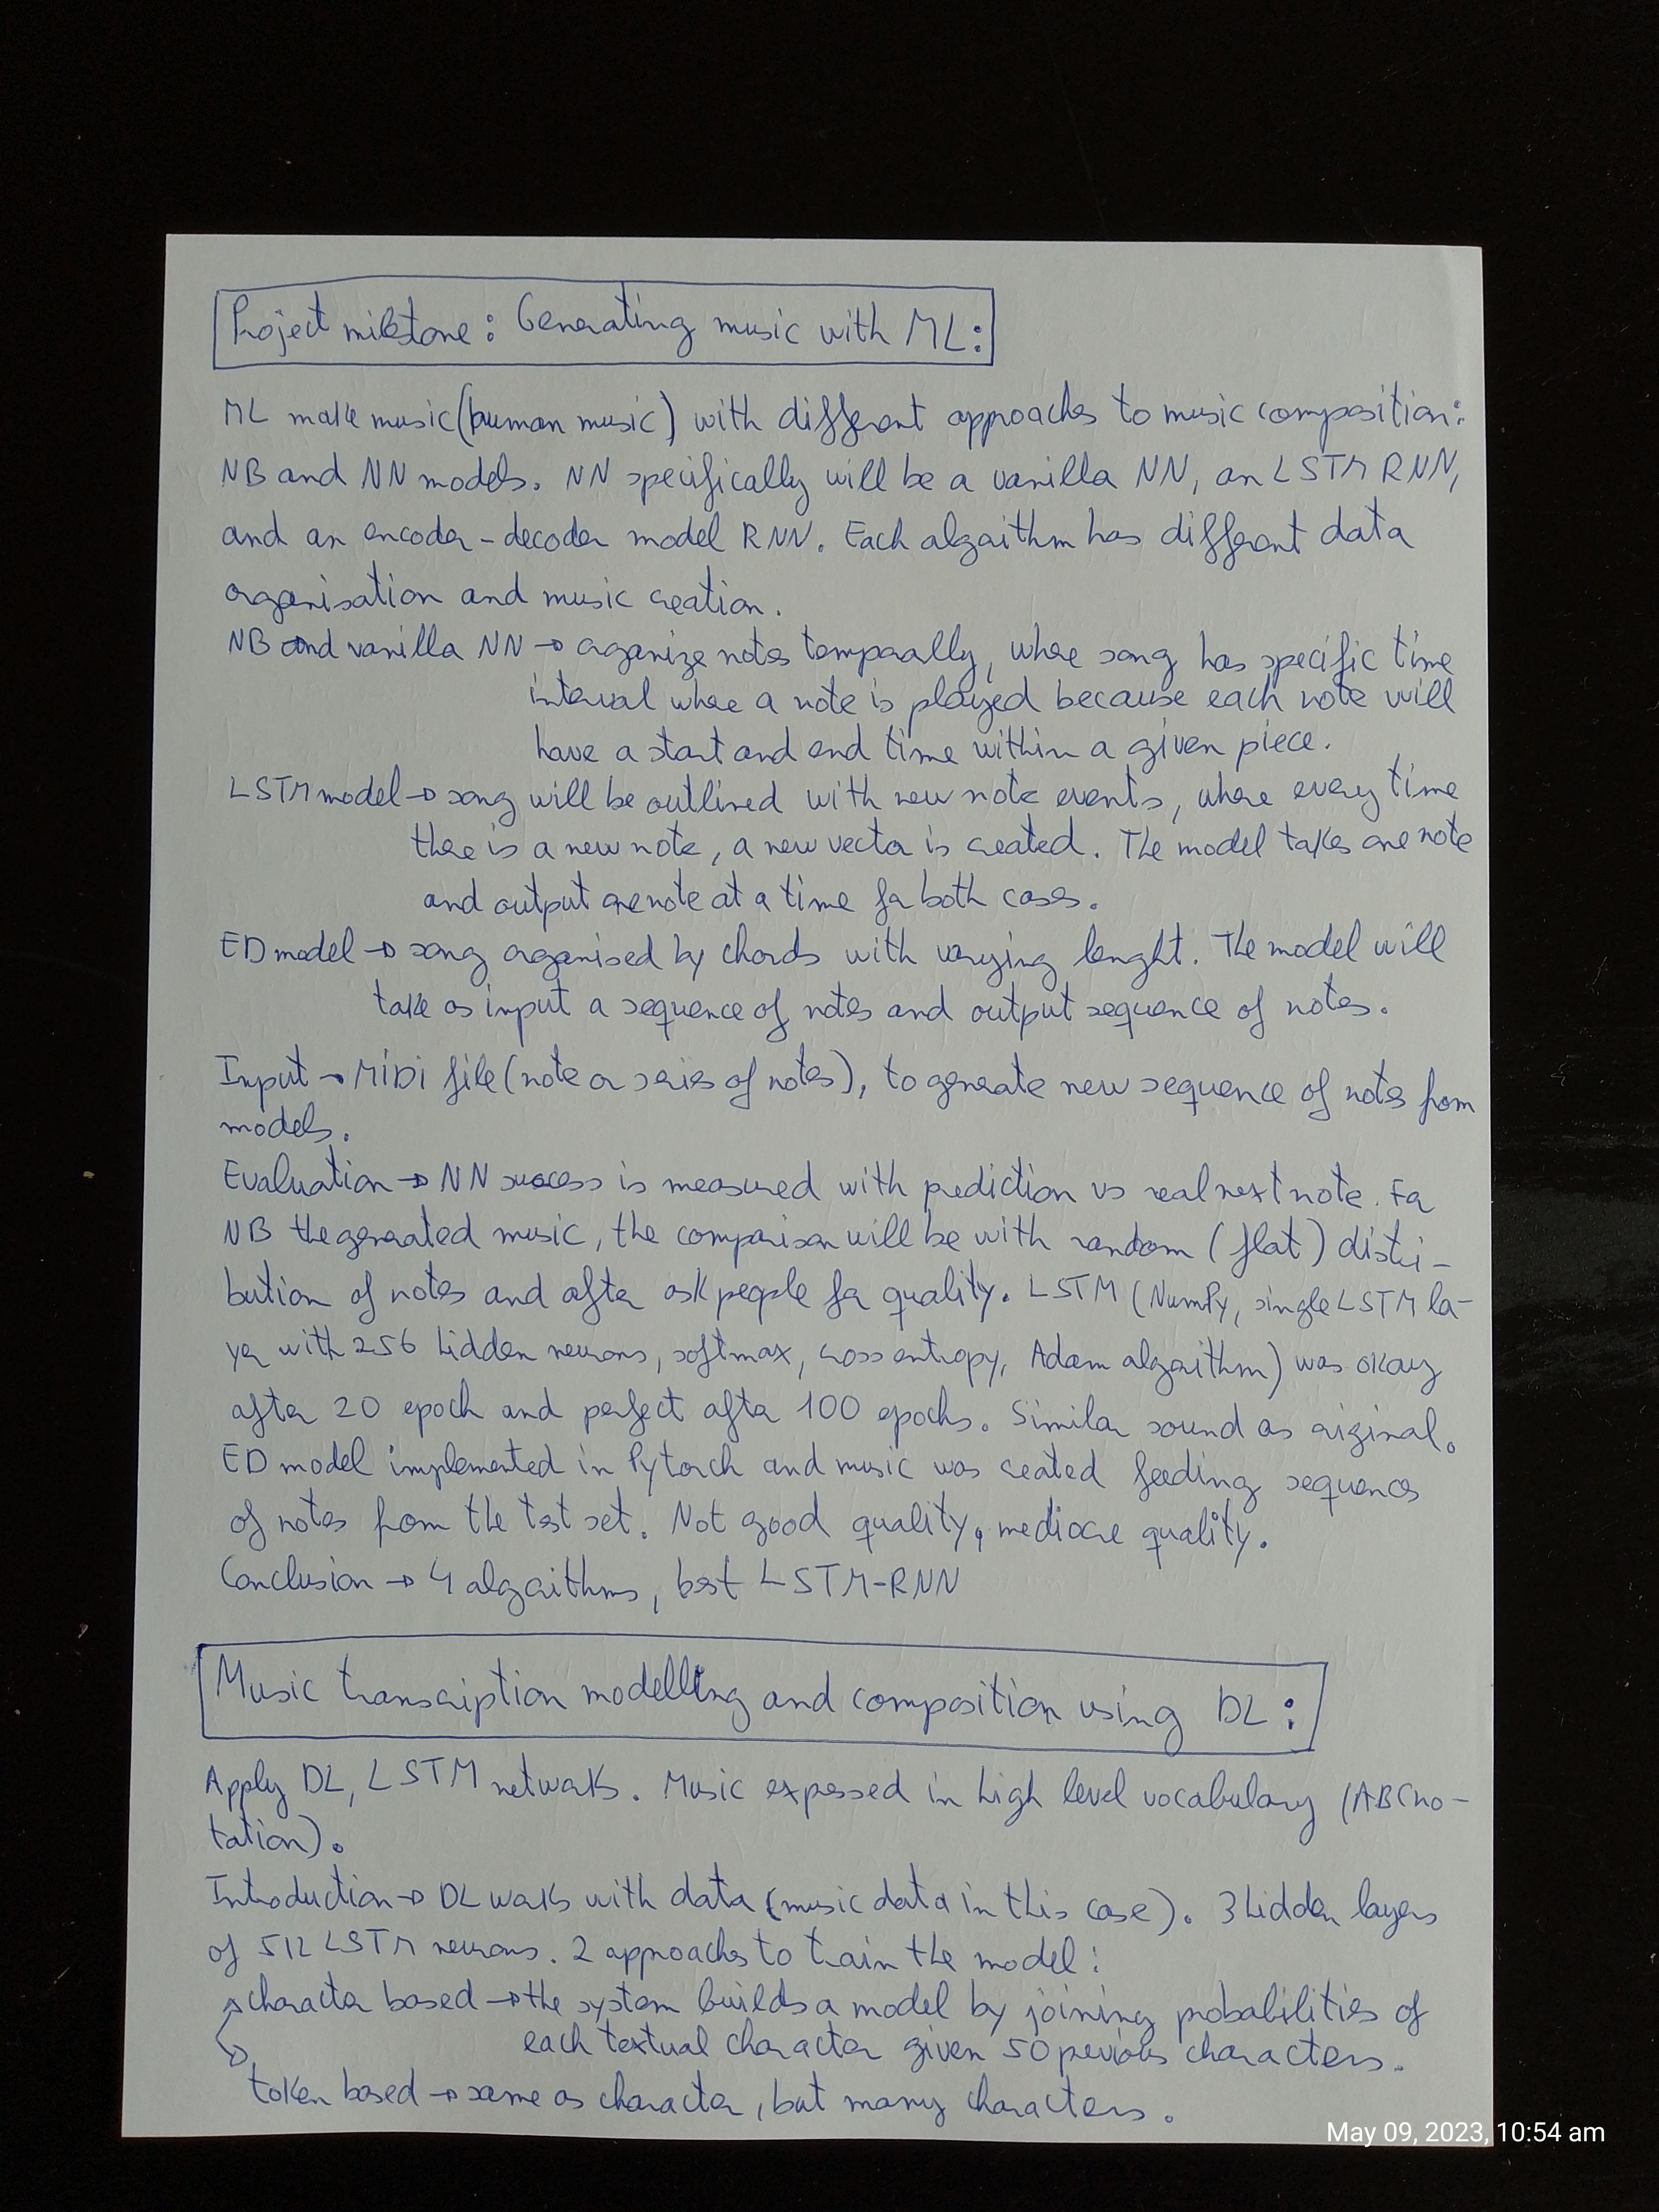 Project milestone: Generating music with ML:
ML make music (human music) with different approaches to music composition:
NB and NN models. NN specifically will be a vanilla NN, an LSTM RNN,
and an encoder-decoder model RNN. Each algorithm has different data
organisation and music creation.
NB and vanilla NN → organize notes temporally, where song has specific time
interval where a note is played because each note will
have a start and end time within a given piece.
LSTM model → song will be outlined with new note events, where every time
there is a new note, a new vector is created. The model takes one note
and output one note at a time for both cases.
ED model → song organised by chords with varying lenght. The model will
take as input a sequence of notes and output sequence of notes.
Input → MiDi file (note or series of notes), to generate new sequence of notes from
models.
Evaluation → NN success is measured with prediction vs real next note. For
NB the generated music, the comparison will be with random (flat) distri-
bution of notes and after ask people for quality. LSTM (NumPy, single LSTM la-
yer with 256 hidden neurons, softmax, cross entropy, Adam algorithm) was okay
after 20 epoch and perfect after 100 epochs. Similar sound as original.
ED model implemented in Pytorch and music was created feeding sequences
of notes from the test set. Not good quality, mediocre quality.
Conclusion → 4 algorithms, best LSTM-RNN
Music transcription modelling and composition using DL:
Apply DL, LSTM networks. Music expressed in high level vocabulary (ABC no-
tation).
Introduction → DL works with data (music data in this case). 3 hidden layers
of 512 LSTM neurons. 2 approaches to train the model:
character based → the system builds a model by joining probabilities of
each textual character given 50 previous characters.
token based → same as character, but many characters.
May 09, 2023, 10:54 am